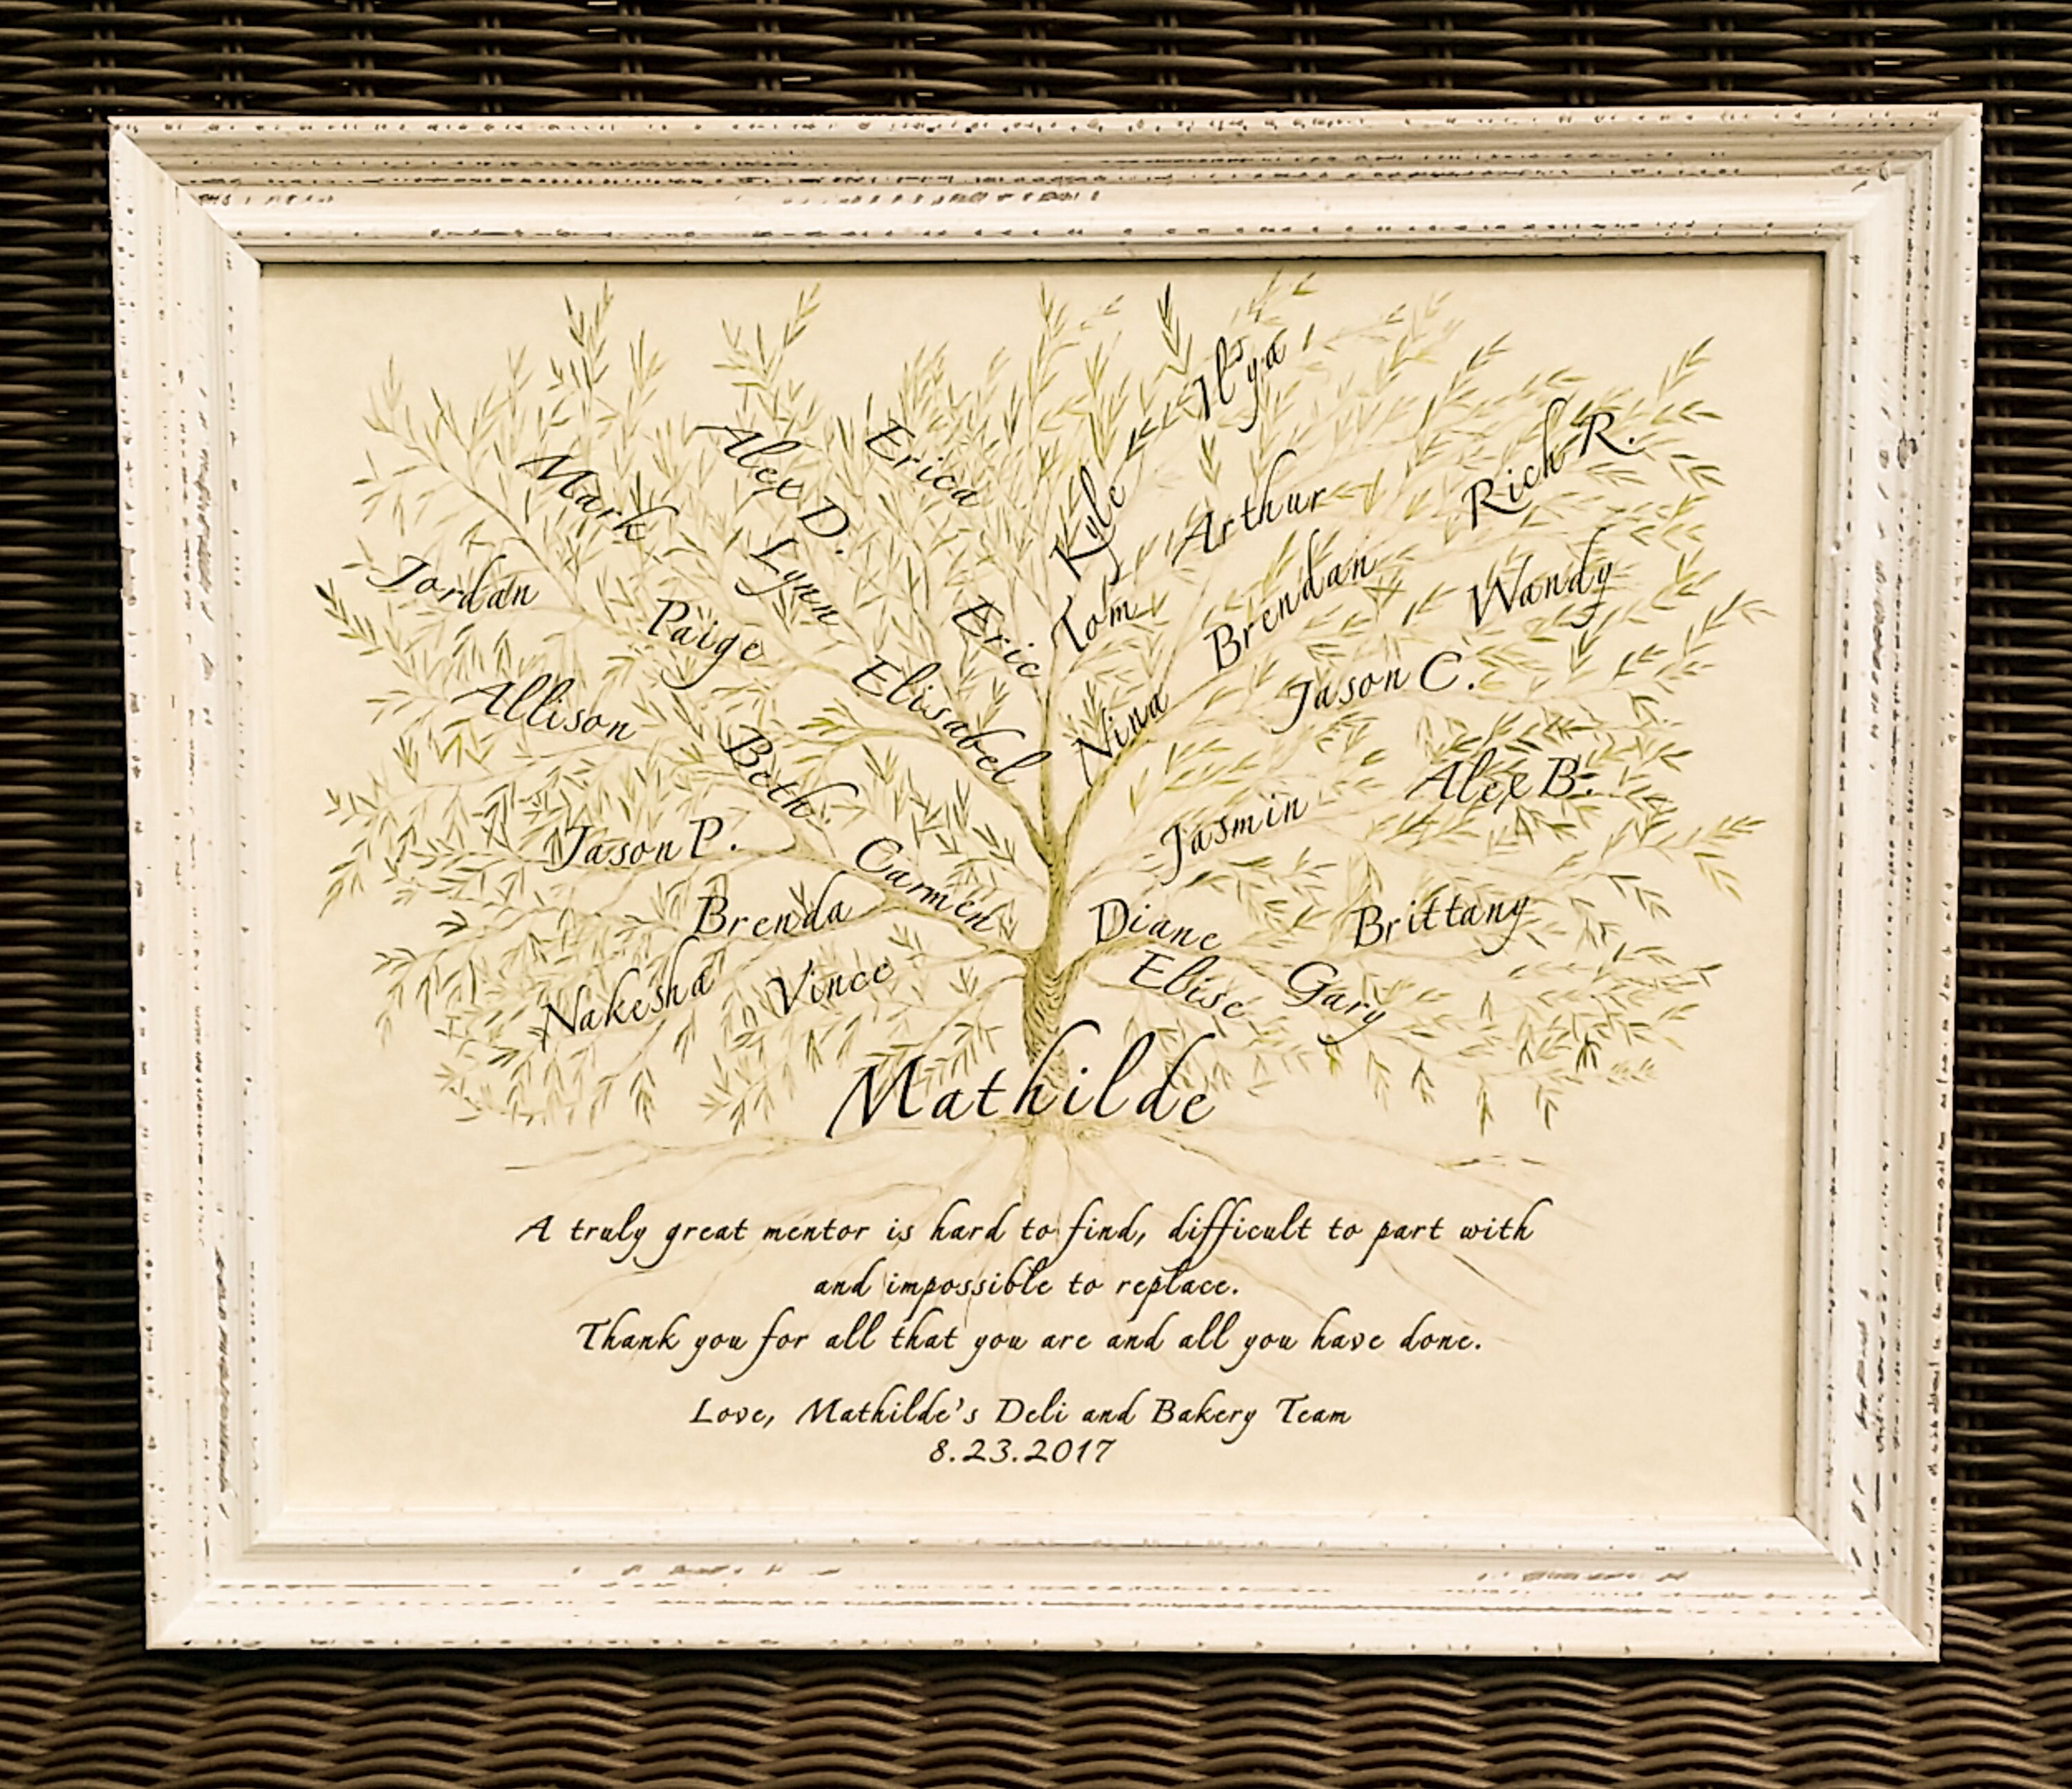 Il'ya
Erica
Alex D.
Rich R.
Mark
Kyle
Arthur
Lynn
Jordan
Brendan
Wandy
Paige
Eric
Tom
Elisabel
Jason C.
Allison
Nina
Beth
Alex B.
Jasmin
Jason P.
Carmen
Brenda
Diane
Brittany
Nakesha
Vince
Elise
Gary
Mathilde
A truly great mentor is hard to find, difficult to part with
and impossible to replace.
Thank you for all that you are and all you have done.
Love, Mathilde's Deli and Bakery Team
8.23.2017